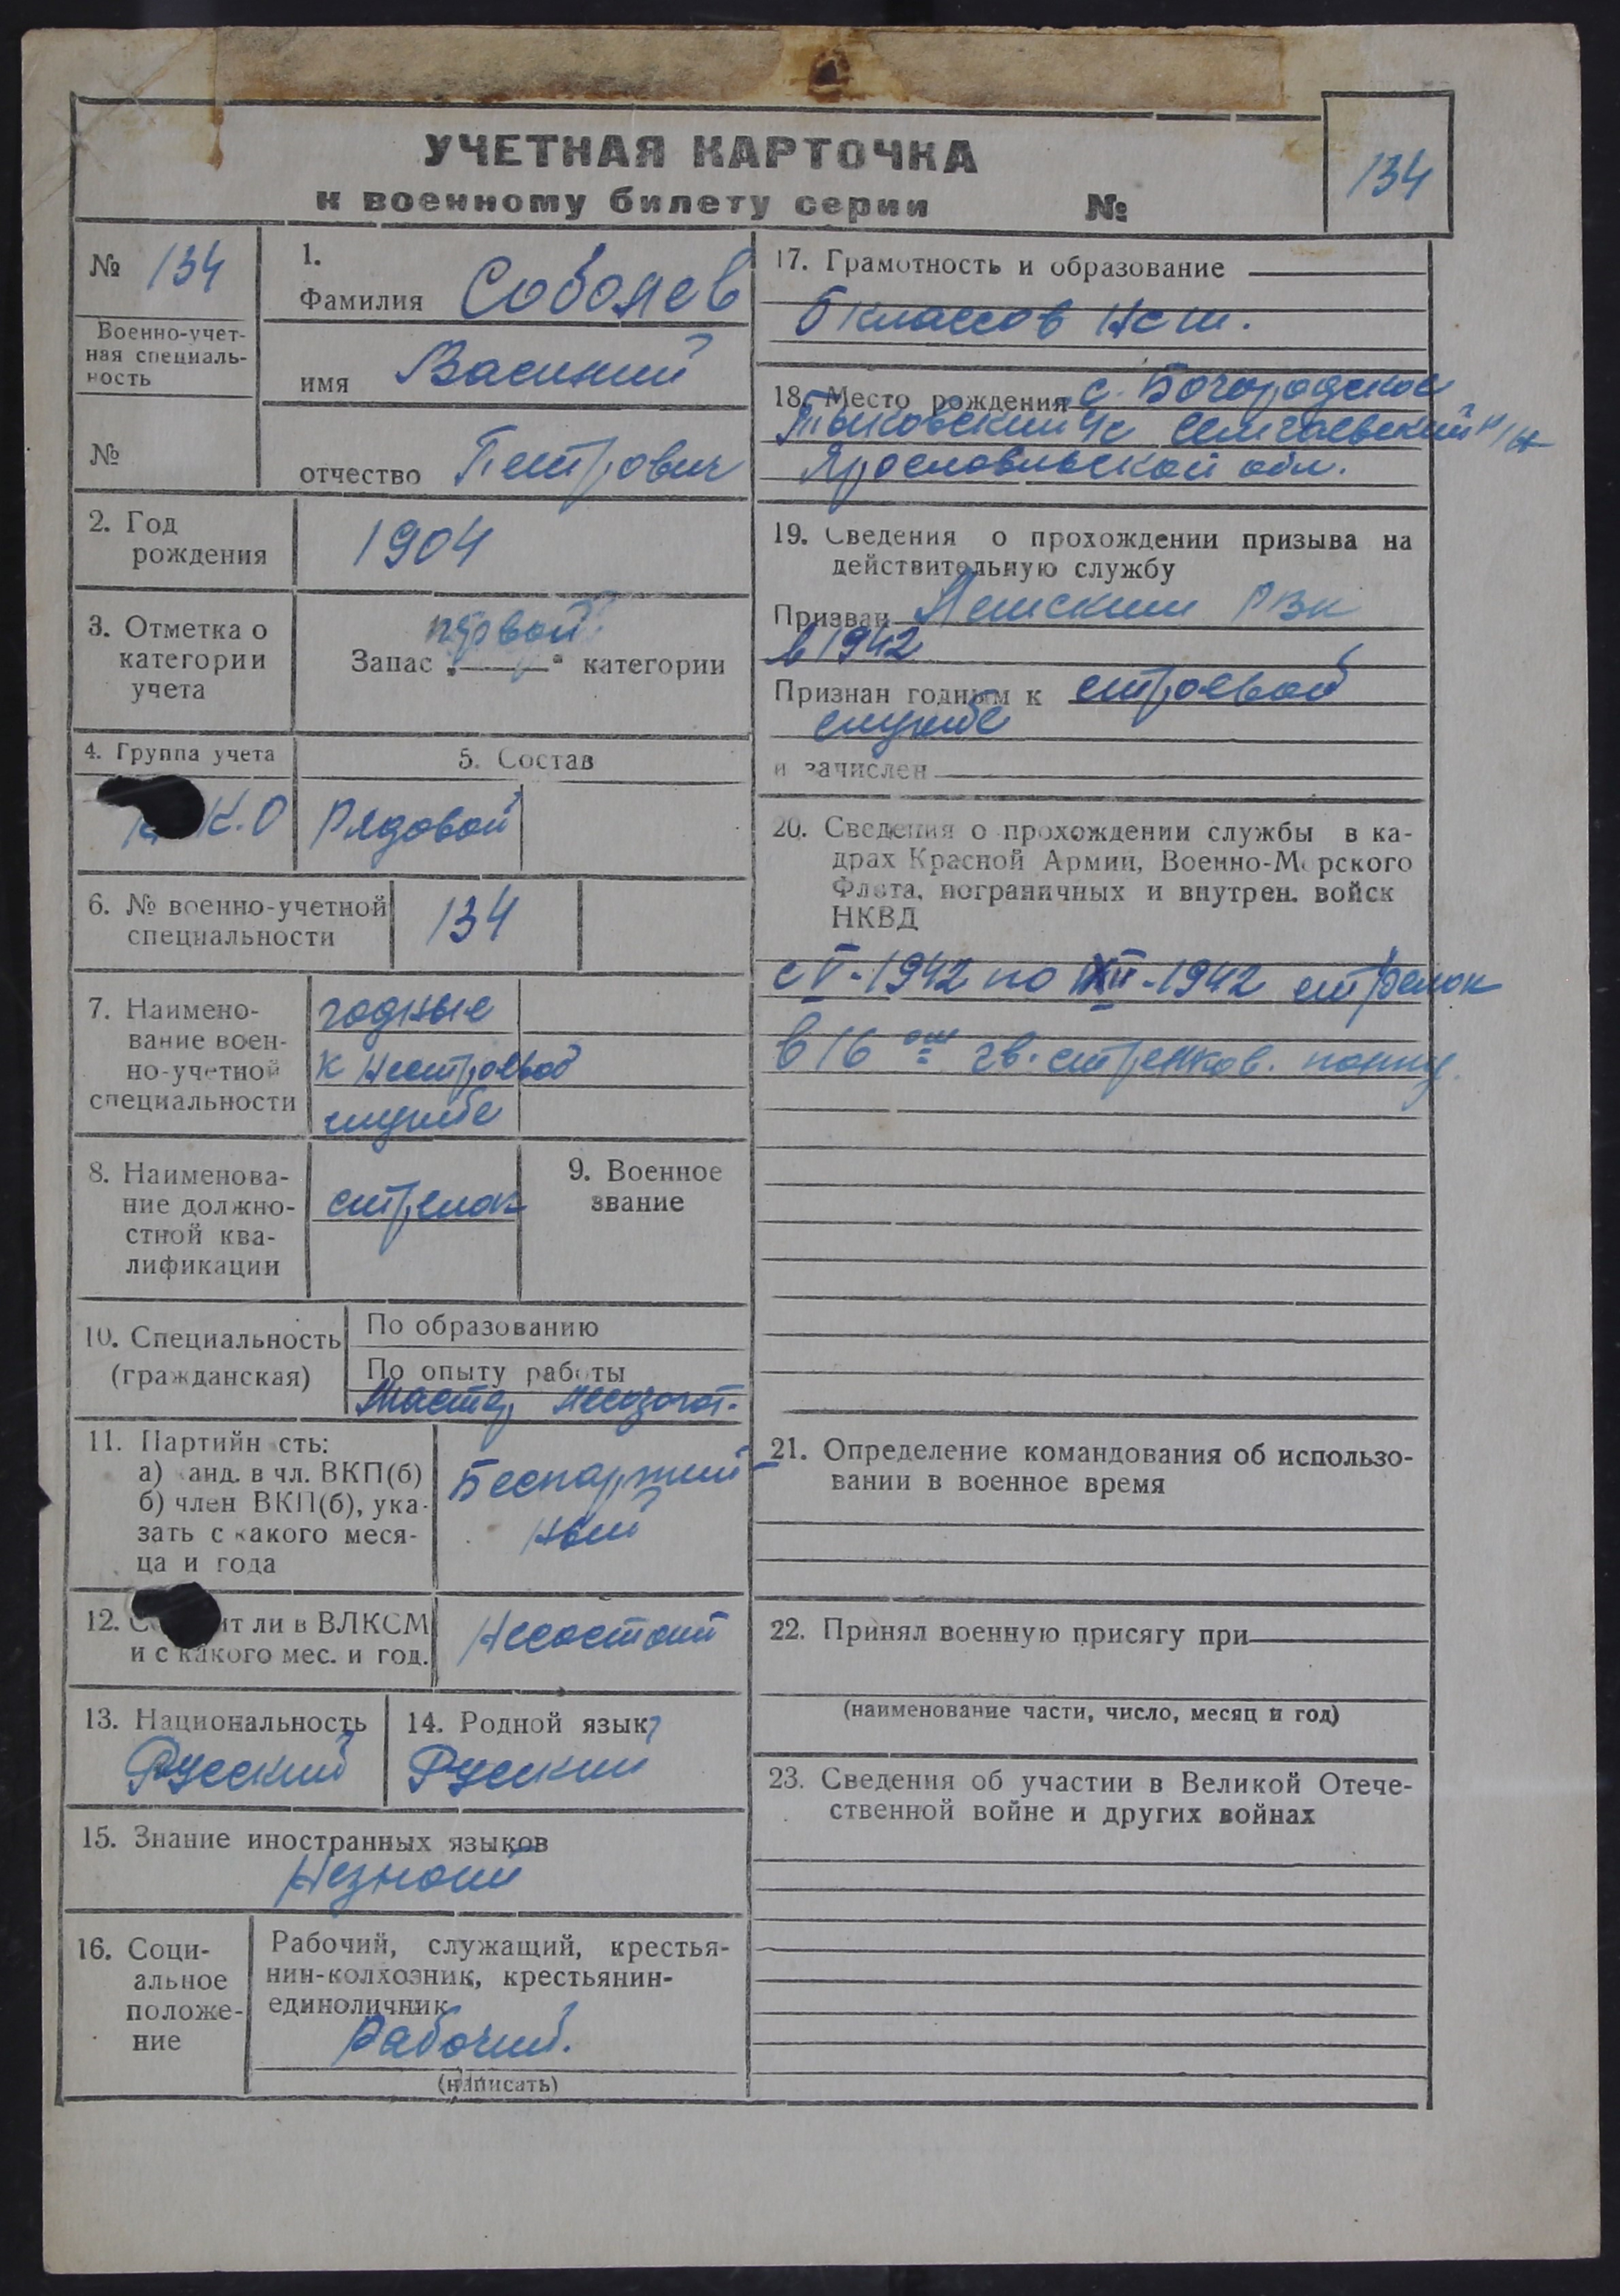 УЧЕТНАЯ КАРТОЧКА
к военному билету серии №
134
№ 134
Военно-учет-
ная специаль-
ность
№
1.
Фамилия Соболев
имя Василий
отчество Петрович
2. Год
рождения
1904
3. Отметка о
категории
учета
Запас „первой“ категории
4. Группа учета
К.О
5. Состав
Рядовой
6. № военно-учетной
специальности
134
7. Наимено-
вание воен-
но-учетной
специальности
годные
к нестроевой
службе
8. Наименова-
ние должно-
стной ква-
лификации
стрелок
9. Военное
звание
10. Специальность
(гражданская)
По образованию
По опыту работы
Мастер лесозагот.
11. Партийн сть:
а) канд. в чл. ВКП(б)
б) член ВКП(б), ука-
зать с какого меся-
ца и года
Беспартий
ный
12. С ит ли в ВЛКСМ
и с какого мес. и год.
Несостоит
13. Национальность
Русский
14. Родной язык
Русский
15. Знание иностранных языков
Незнает
16. Соци-
альное
положе-
ние
Рабочий, служащий, крестья-
нин-колхозник, крестьянин-
единоличник
Рабочий.
(написать)
17. Грамотность и образование
классов
18. Место рождения с. Богородское
с
Ярославльской обл.
19. Сведения о прохождении призыва на
действительную службу
Призван РВК
в 1942
Признан годным к строевой
службе
и зачислен
20. Сведения о прохождении службы в ка-
драх Красной Армии, Военно-Морского
Флота, пограничных и внутрен. войск
НКВД
с V-1942 по XII-1942 стрелок
в 16 ом гв. стрелков. полку.
21. Определение командования об использо-
вании в военное время
22. Принял военную присягу при
(наименование части, число, месяц и год)
23. Сведения об участии в Великой Отече-
ственной войне и других войнах